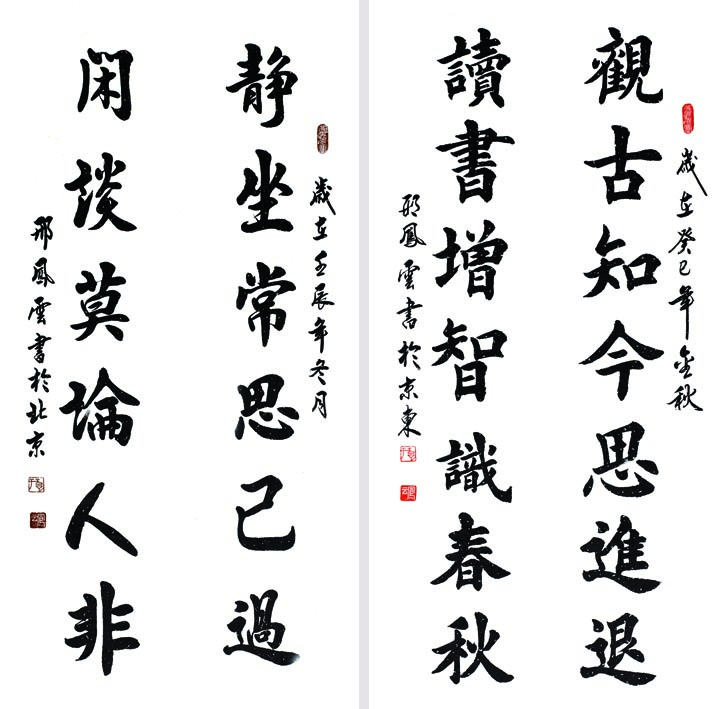 歲在癸巳年金秋
觀古知今思進退
讀書增智識春秋
邢鳳雲書於京東
歲在壬辰年冬月
静坐常思己過
閑談莫論人非
邢鳳雲書於北京